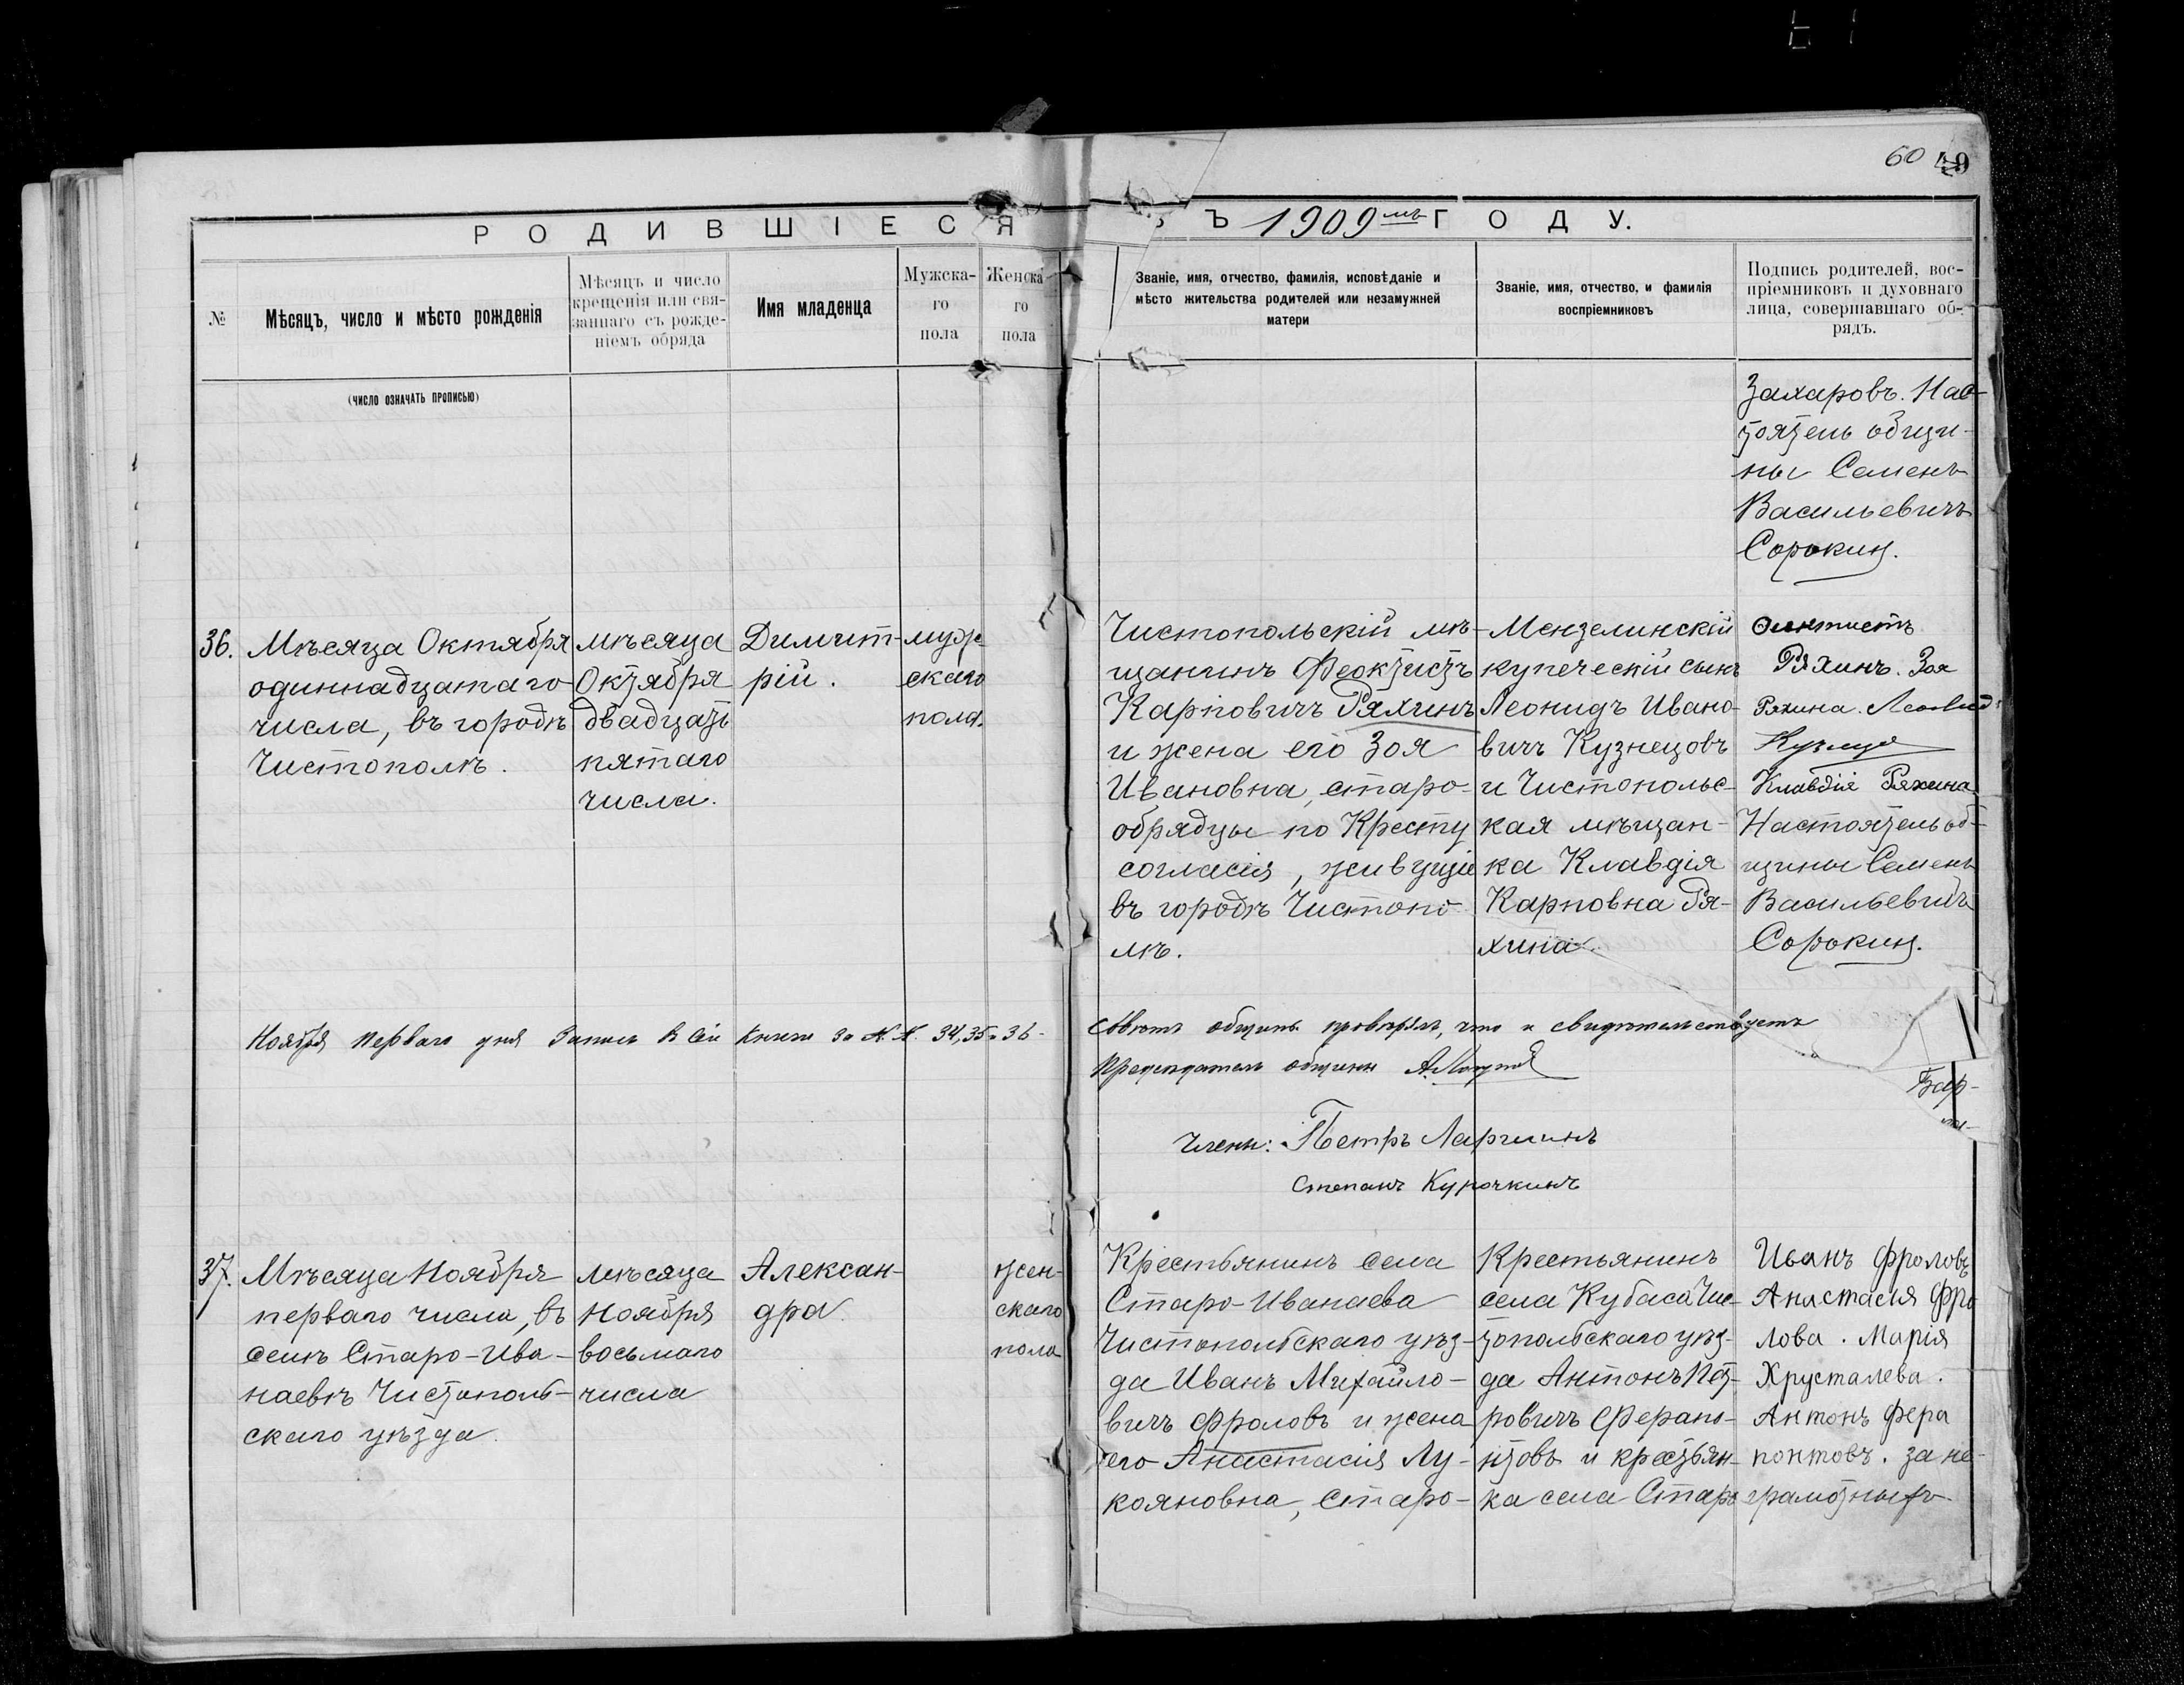 60 49
РОДИВШІЕСЯ ВЪ 1909мъ ГОДУ.
№
Мѣсяцъ, число и мѣсто рожденія
(число означать прописью)
Мѣсяцъ и число
крещенія или свя-
заннаго съ рожде-
ніемъ обряда
Имя младенца
Мужска-
го
пола
Женска
го
пола
Званіе, имя, отчество, фамилія, исповѣданіе и
мѣсто жительства родителей или незамужней
матери
Званіе, имя, отчество, и фамилія
воспріемниковъ
Подпись родителей, вос-
пріемниковъ и духовнаго
лица, совершавшаго об-
рядъ.
Захаровъ. Нас-
тоятель общи-
ны Семенъ
Васильевичъ
Сорокин.
36.
Мѣсяца Октября
одиннадцатаго
числа, въ городѣ
Чистополѣ.
мѣсяца
Октября
двадцать
пятаго
числа.
Димит-
рій.
муж-
скаго
пола.
Чистопольскій мѣ-
щанинъ Феоктистъ
Карповичъ Ряхинъ
и жена его Зоя
Ивановна, старо-
обрядцы по Кресту
согласія, живущіе
въ городѣ Чистопо-
лѣ.
Мензелинскій
купеческій сынъ
Леонидъ Ивано-
вичъ Кузнецовъ
и Чистопольс-
кая мѣщан-
ка Клавдія
Карповна Ря-
хина.
Ряхинъ. Зоя
Ряхина. Леонид
Клавдія Ряхина
Настоятель об-
щины Семенъ
Васильевичъ
Сорокин.
Ноября перваго дня Запись в сей книге за №. №. 34, 35 и 36-
совѣтъ общины провѣрял, что и свидѣтельствуетъ
Председатель общины
Бар-
Члены: Петръ Ларгинъ
Степанъ Курочкинъ
37.
Мѣсяца Ноября
перваго числа, въ
селѣ Старо-Ива-
наевѣ Чистополь-
скаго уѣзда.
мѣсяца
Ноября
восьмаго
числа
Алексан-
дра.
жен-
скаго
пола
Крестьянинъ села
Старо-Иванаева
Чистопольскаго уѣз-
да Иванъ Михайло-
вичъ Фроловъ и жена
его Анастасія Лу-
кояновна, старо-
Крестьянинъ
села Кубаса Чис-
топольскаго уѣз-
да Антонъ Пет-
ровичъ Ферапо-
нтовъ и крестьян-
ка села Старо
Иванъ Фроловъ
Анастасія Фро
лова. Марія
Хрусталева.
Антонъ Фера
понтовъ. за не-
грамотныхъ